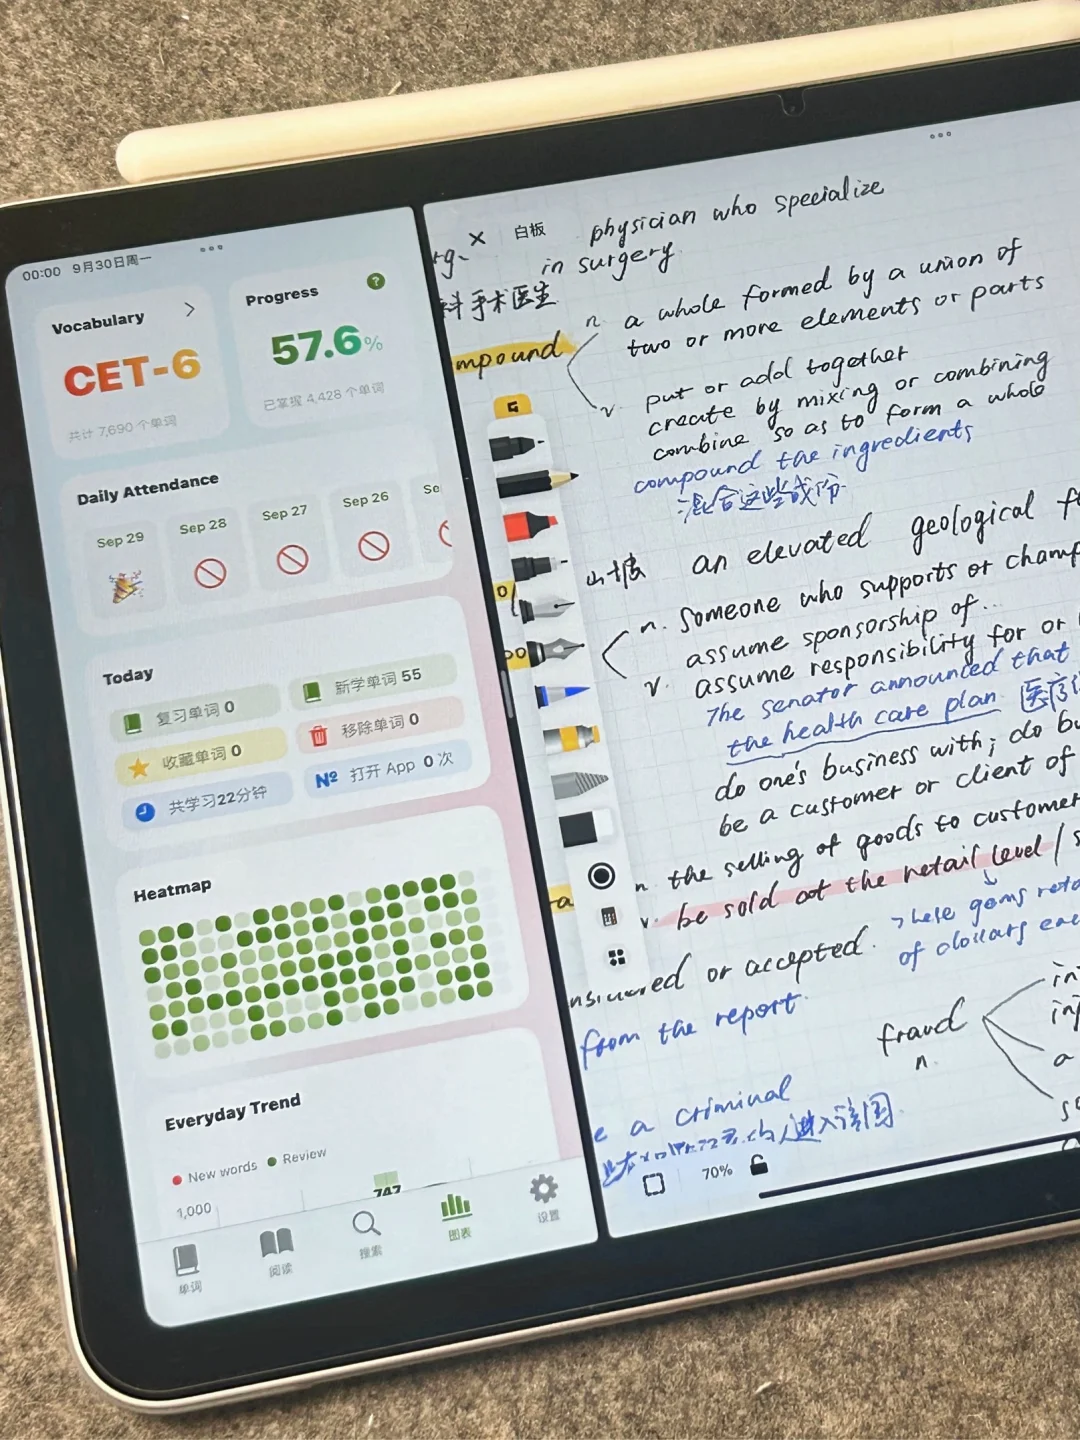 00:00 9月30日周一
Vocabulary
CET-6
共计 7,690 个单词
Progress
?
57.6%
已掌握 4,428 个单词
Daily Attendance
Sep 29
Sep 28
Sep 27
Sep 26
Se
Today
复习单词 0
新学单词 55
收藏单词 0
移除单词 0
共学习22分钟
Nº 打开 App 0 次
Heatmap
Everyday Trend
New words
Review
1,000
747
单词
阅读
搜索
图表
设置
白板
physician who specialize
in surgery
科手术医生
mpound
n. a whole formed by a union of
two or more elements or parts
v. put or add together
create by mixing or combining
combine so as to form a whole
compound the ingredients
混合这些成份
山坡 an elevated geological f
n. someone who supports or champ
assume sponsorship of...
v. assume responsibility for or
The senator announced that
the health care plan 医疗
do one's business with; do bu
be a customer or client of
n. the selling of goods to customer
v. be sold at the retail level / s
These gems reta
of dollars eac
or accepted.
from the report.
fraud
n.
in
inf
a
so
e a criminal
人进入该国.
70%